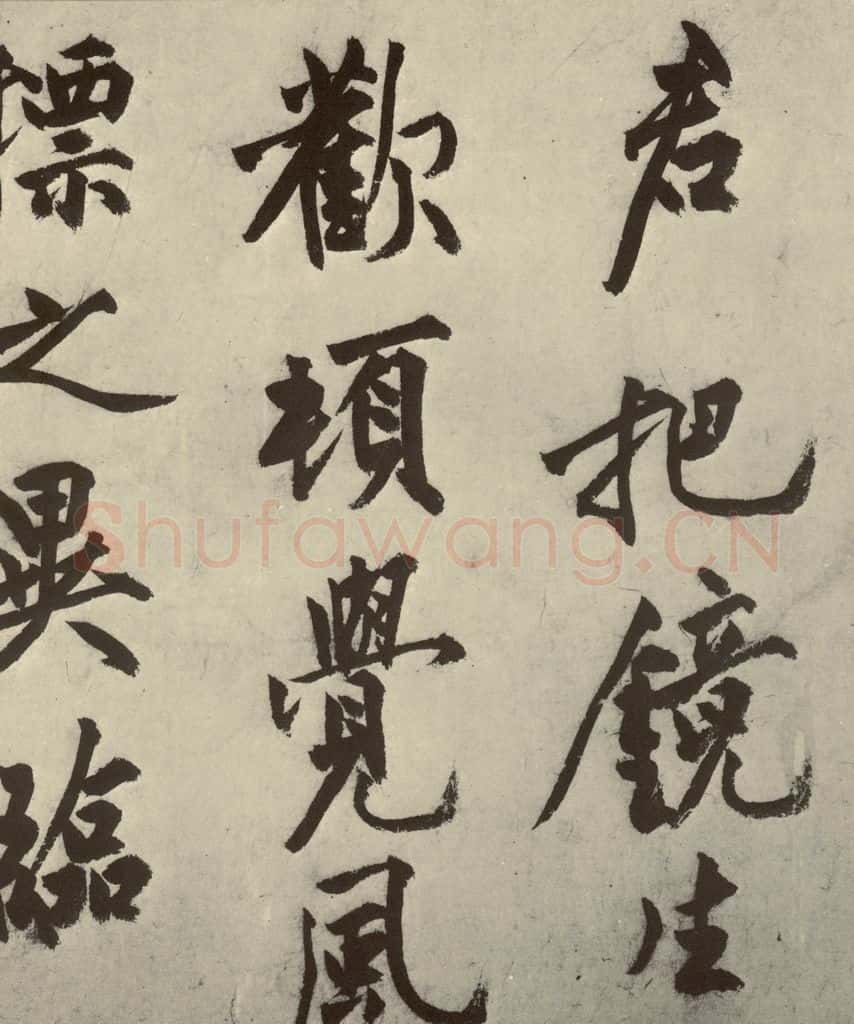 君把鏡生
歡頓覺風
標之異臨
Shufawang.CN